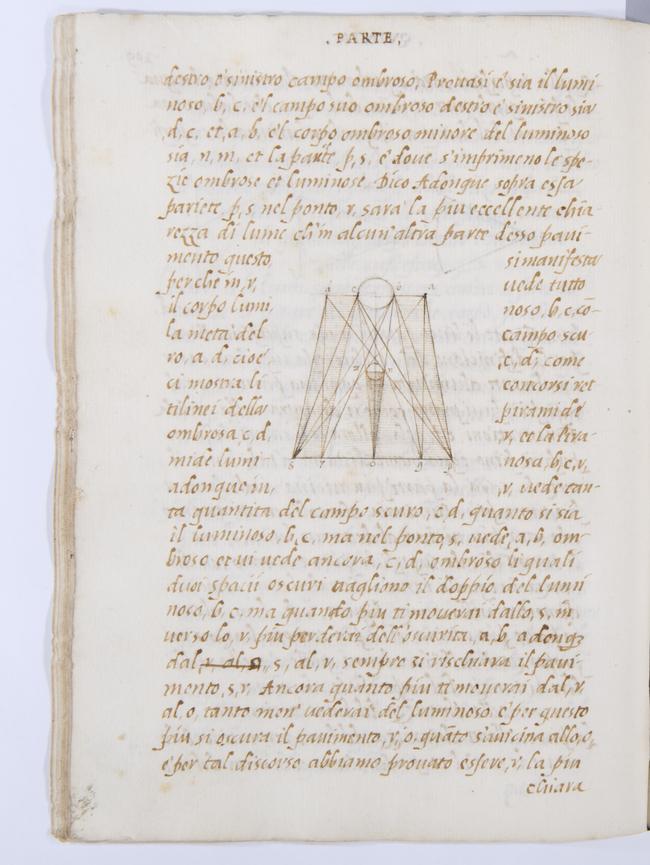 . PARTE .
destro e sinistro campo ombroso, Prottasi e sia il lumi-
noso, b, c, e'l campo suo ombroso destro e sinistro sia
d, c, et, a, b, e'l corpo ombroso minore del luminoso
sia, n, m, et la parite, p, s, e dove s'imprimeno le spe-
zie ombrose et luminose Dico Adonque sopra essa
pariete p, s, nel ponto, r, sara' la piu eccellente chia-
rezza di lume ch'in alcun'altra parte desso pavi-
mento questo si manifesta
perche in, r, vede tutto
il corpo lumi, noso, b, c, co-
la meta del campo scu-
ro, a, d, cioe', c, d, come
ci mostra li concorsi ret
tilinei della piramide
ombrosa c, d, r, et la pira-
mide lumi nosa, b, c, r,
adonque in, r, vede tan-
ta quantita del campo scuro, c, d, quanto si sia
il luminoso, b, c, ma nel ponto, s, vede, a, b, om-
broso et vi vede ancora, c, d, ombroso li quali
duoi spacii oscuri vagliono il doppio del lumi
noso, b, c, ma quando piu ti moverai dallo, s, in
verso lo, r, piu perderai dell'oscurita, a, b, adonq3
dal, s, al, r, sempre si rischiara il pavi-
mento, s, r, Ancora quanto piu ti moverai dal, r
al, o, tanto men' vederai del luminoso e per questo
piu si oscura il pavimento, r, o, quãto s'avicina allo, o,
e per tal discorso abbiamo provato essere, r, la piu
chiara
c b a
s r o q